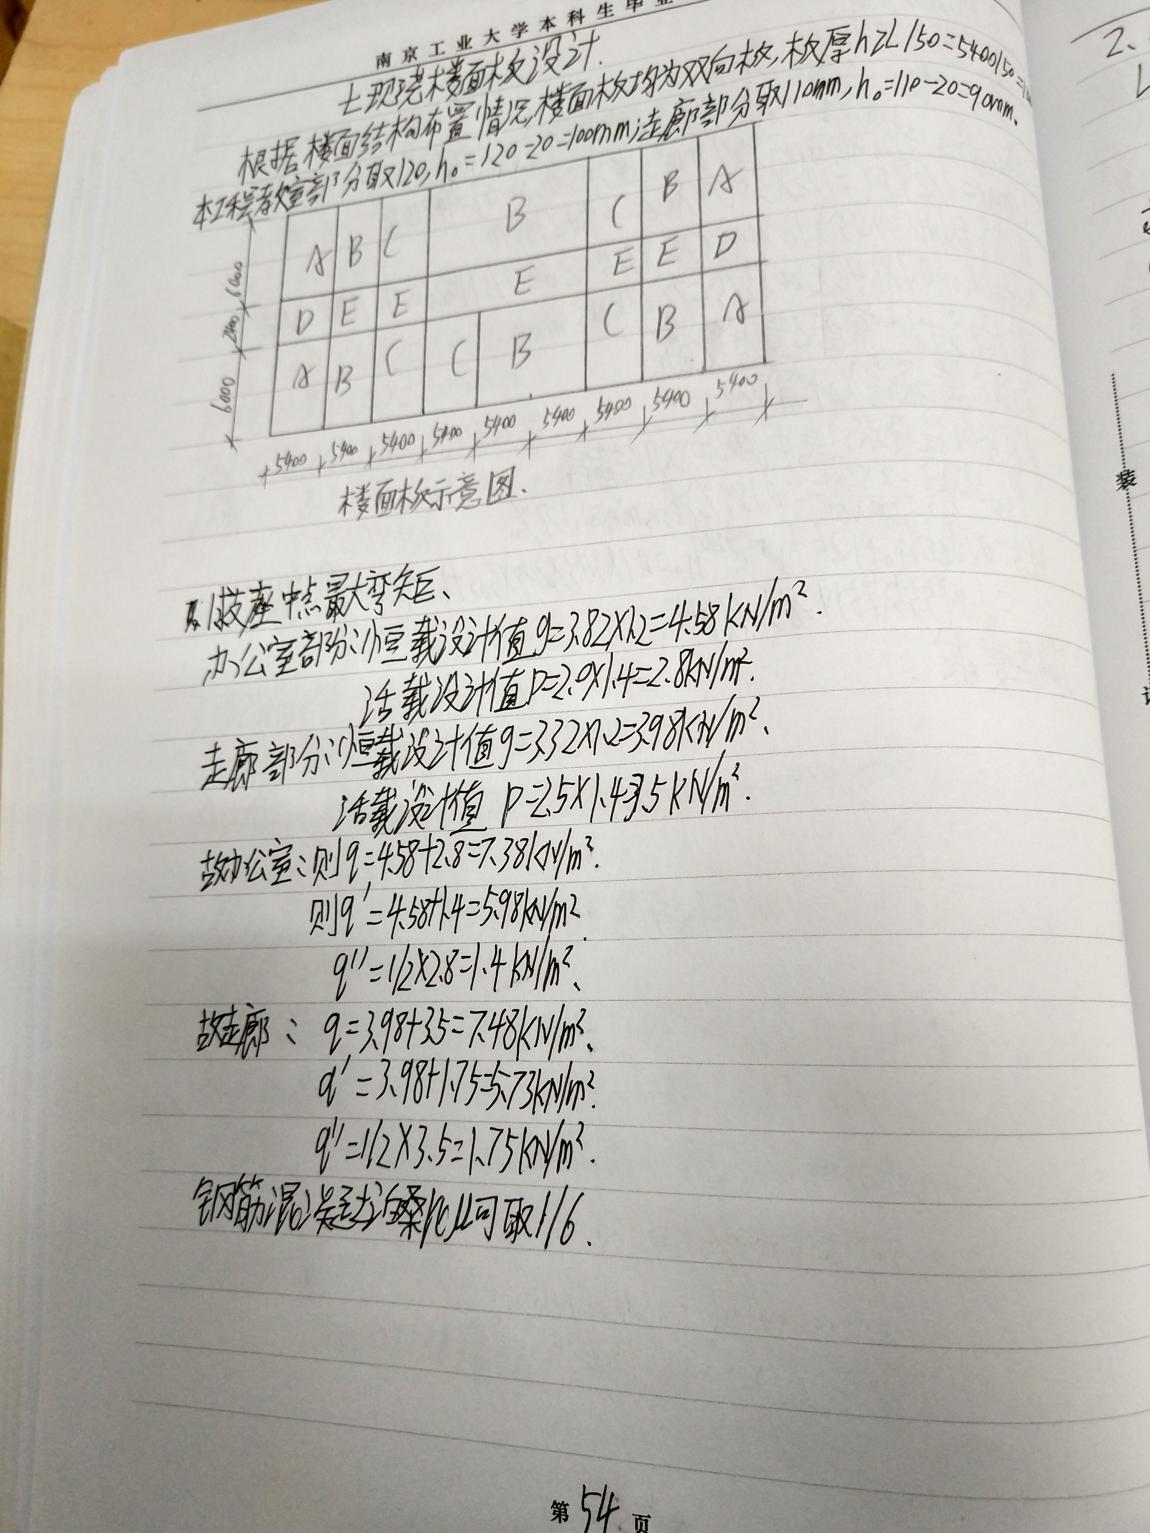 南京工业大学本科生毕业
七现浇楼面板设计.
根据楼面结构布置情况,楼面板均为双向板,板厚h≥L/50=5400/50=
本工程教室部分取120,h₀=120-20=100mm;走廊部分取110mm,h₀=110-20=90mm.
A B C B C B A
D E E E E E D
A B C C B C B A
6000 2400 6000
5400 5400 5400 5400 5400 5400 5400 5400 5400
楼面板示意图.
1.板座中点最大弯矩、
办公室部分:恒载设计值g=3.82×1.2=4.58KN/m².
活载设计值p=2.0×1.4=2.8kN/m².
走廊部分:恒载设计值g=3.32×1.2=3.98KN/m²、
活载设计值 p=2.5×1.4=3.5KN/m².
故办公室:则q=4.58+2.8=7.38KN/m².
则q'=4.58+1.4=5.98KN/m².
q''=1/2×2.8=1.4KN/m²、
故走廊: q=3.98+3.5=7.48KN/m²、
q'=3.98+1.75=5.73KN/m².
q''=1/2×3.5=1.75KN/m².
钢筋混凝土泊桑比μ可取1/6.
第54页
2.
装